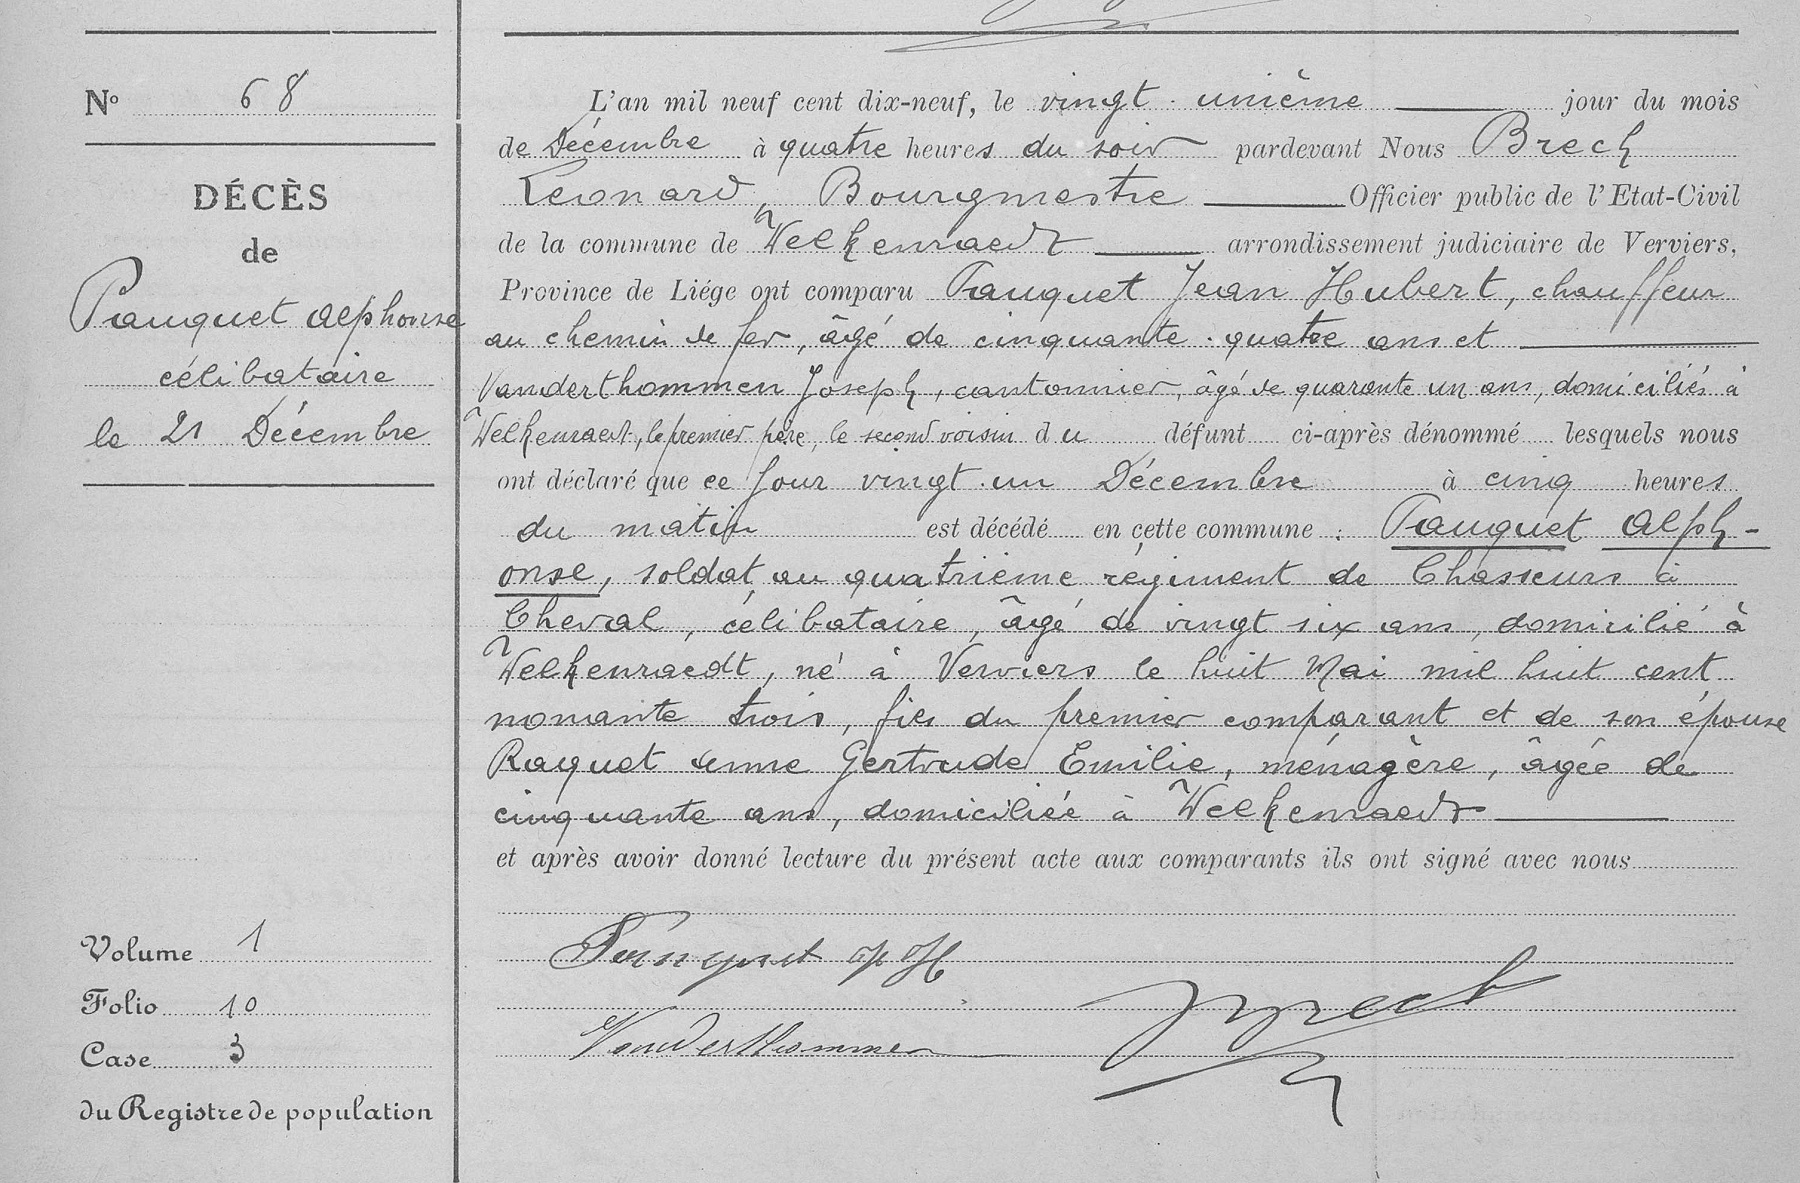 N° 68
DÉCÈS
de
Pauquet Alphonse
célibataire
le 21 Décembre
Volume 1
Folio 10
Case 3
du Registre de population
L'an mil neuf cent dix-neuf, le vingt-unième jour du mois
de Décembre à quatre heures du soir pardevant Nous Brech
Leonard, Bourgmestre Officier public de l'Etat-Civil
de la commune de Welkenraedt arrondissement judiciaire de Verviers,
Province de Liége ont comparu Pauquet Jean Hubert, chauffeur
au chemin de fer, âgé de cinquante-quatre ans et
Vanderthommen Joseph, cantonnier, âgé de quarante un ans, domiciliés à
Welkenraedt, le premier père, le second voisin du défunt ci-après dénommé lesquels nous
ont déclaré que ce jour vingt-un Décembre à cinq heures
du matin est décédé en cette commune : Pauquet Alph-
onse, soldat au quatrième régiment de Chasseurs à
Cheval, célibataire, âgé de vingt six ans, domicilié à
Welkenraedt, né à Verviers le huit Mai mil huit cent
nonante trois, fils du premier comparant et de son épouse
Raquet Anne Gertrude Emilie, ménagère, âgée de
cinquante ans, domiciliée à Welkenraedt
et après avoir donné lecture du présent acte aux comparants ils ont signé avec nous
Pauquet
Vanderthommen
Brech